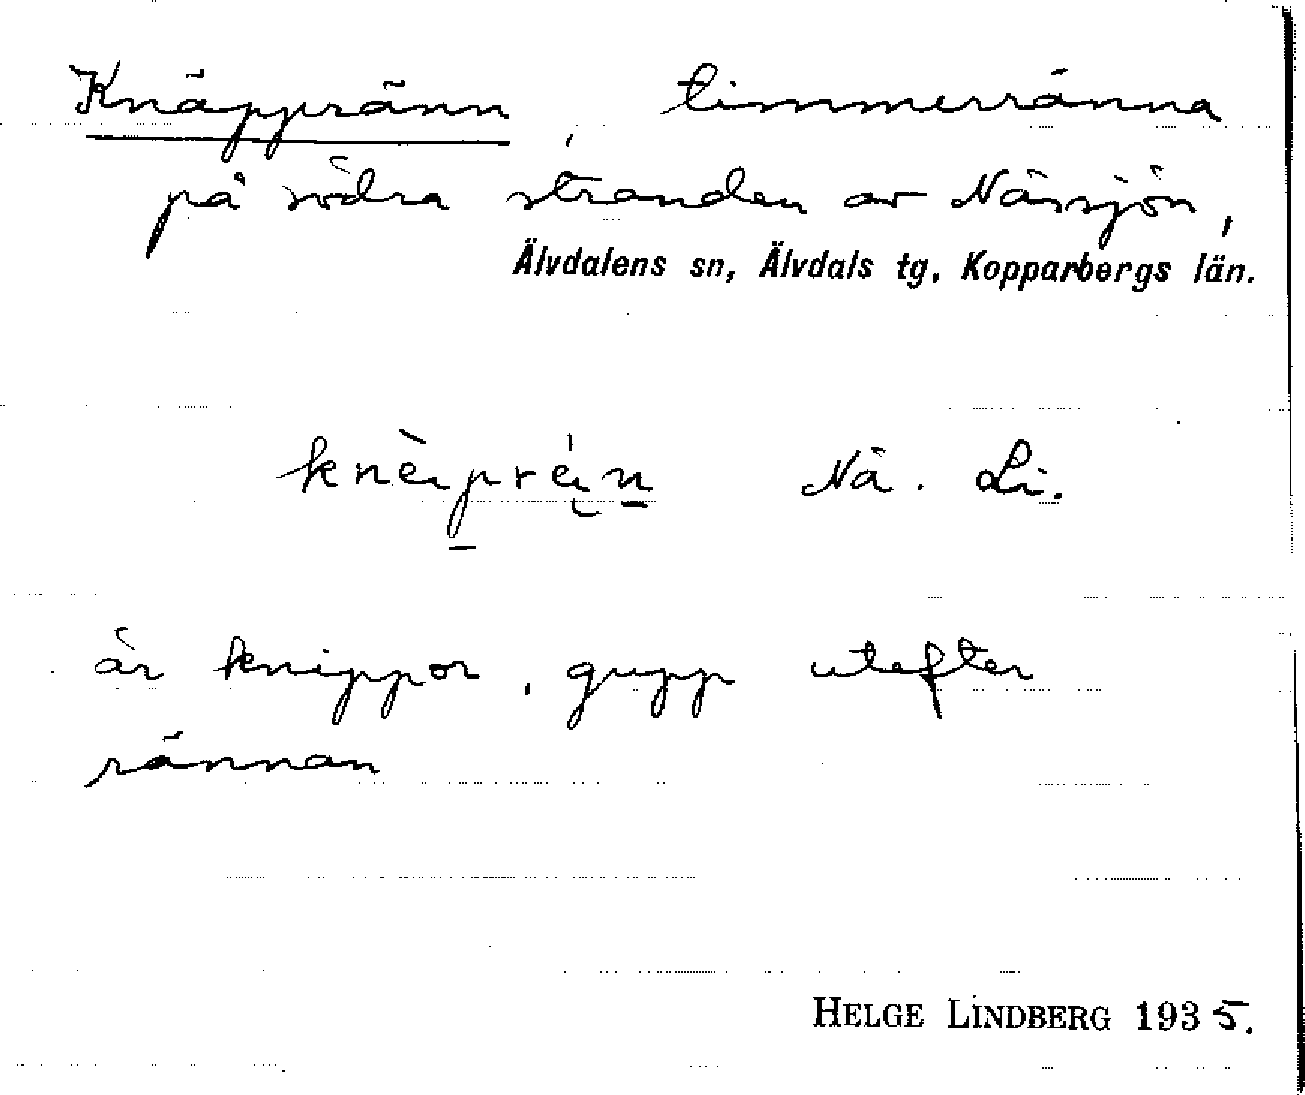 Knäppränn, timmerränna
på södra stranden av Nässjön,
Älvdalens sn, Älvdals tg, Kopparbergs län.
Nä. Li.
är knippor, gupp utefter
rännan
HELGE LINDBERG 1935.